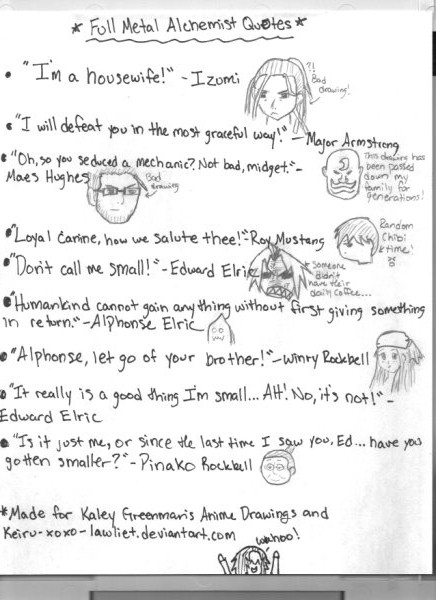 * Full Metal Alchemist Quotes *
• "I'm a housewife!" - Izumi
?!
Bad
drawing!
• "I will defeat you in the most graceful way!" - Major Armstrong
• "Oh, so you seduced a mechanic? Not bad, midget." -
Maes Hughes
Bad
drawing
This drawing has
been passed
down my
family for
generations!
• "Loyal Canine, how we salute thee!" - Roy Mustang
Random
Chibi
time!
• "Don't call me small!" - Edward Elric
* Someone
didn't
have their
daily coffee...
• "Humankind cannot gain anything without first giving something
in return." - Alphonse Elric
• "Alphonse, let go of your brother!" - Winry Rockbell
• "It really is a good thing I'm small... AH! No, it's not!" -
Edward Elric
• "Is it just me, or since the last time I saw you, Ed... have you
gotten smaller?" - Pinako Rockbell
*Made for Kaley Greenman's Anime Drawings and
Keiru-xoxo-lawliet.deviantart.com
wahoo!